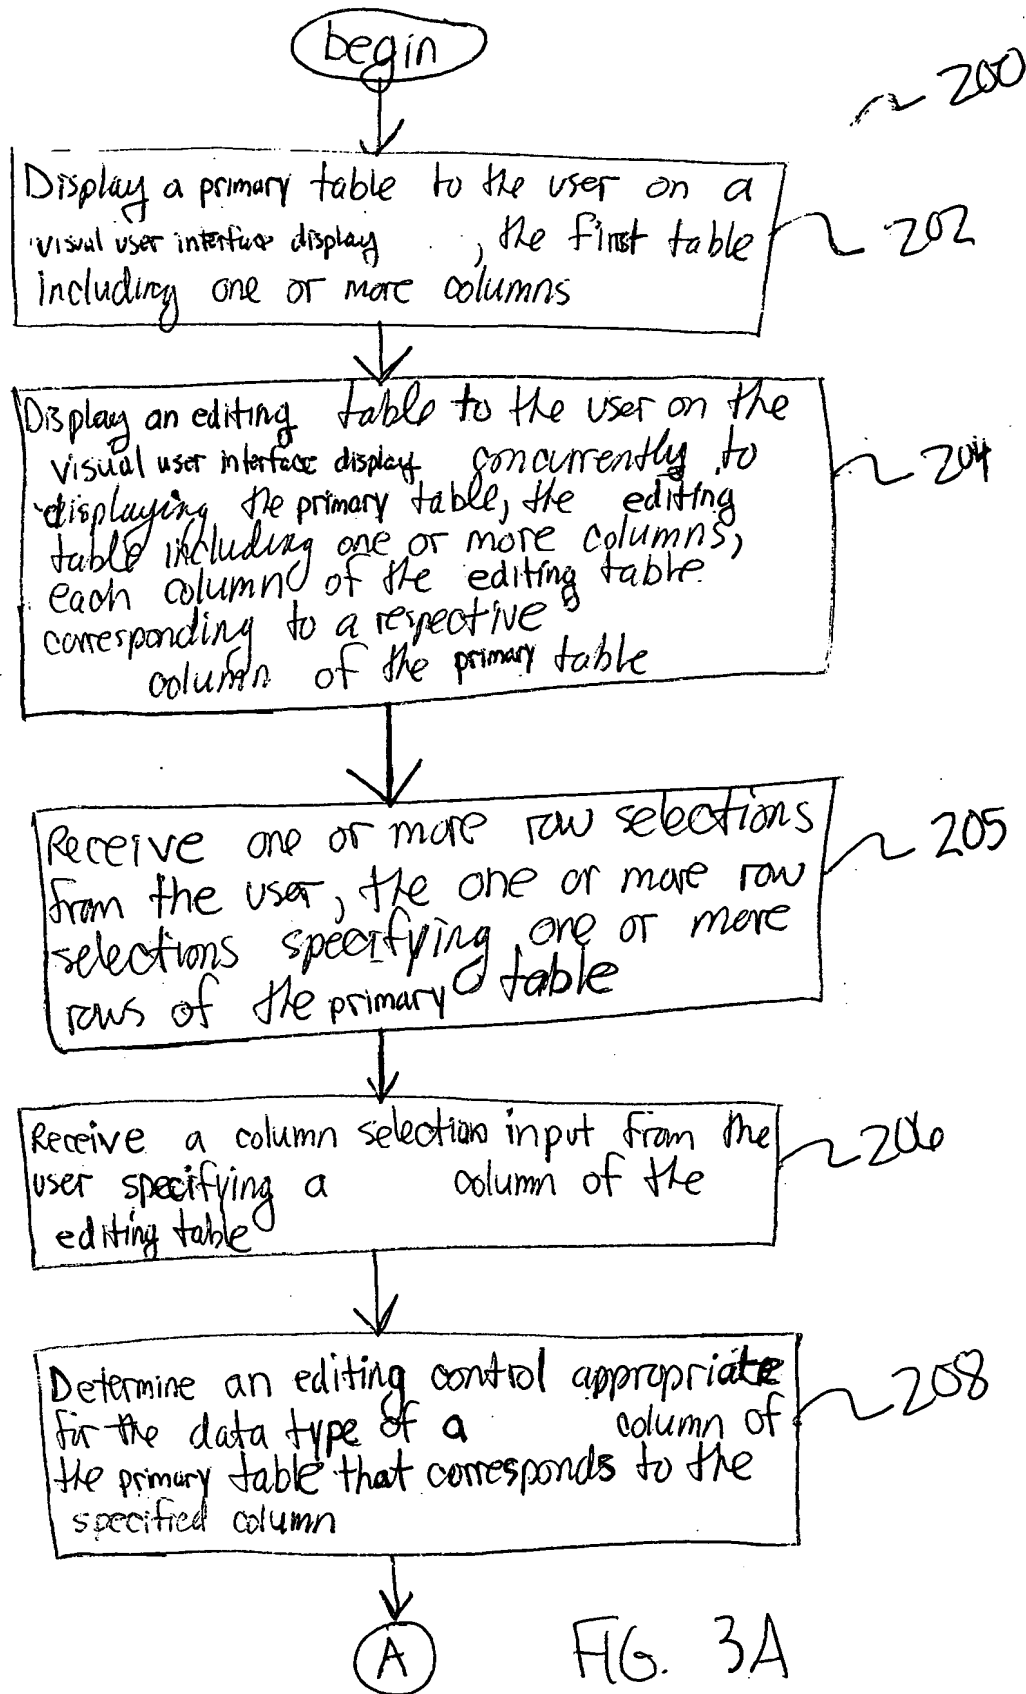 begin
200
Display a primary table to the user on a
visual user interface display , the first table
including one or more columns
202
Display an editing table to the user on the
visual user interface display concurrently to
displaying the primary table, the editing
table including one or more columns,
each column of the editing table
corresponding to a respective
column of the primary table
204
Receive one or more row selections
from the user, the one or more row
selections specifying one or more
rows of the primary table
205
Receive a column selection input from the
user specifying a column of the
editing table
206
Determine an editing control appropriate
for the data type of a column of
the primary table that corresponds to the
specified column
208
A
FIG. 3A